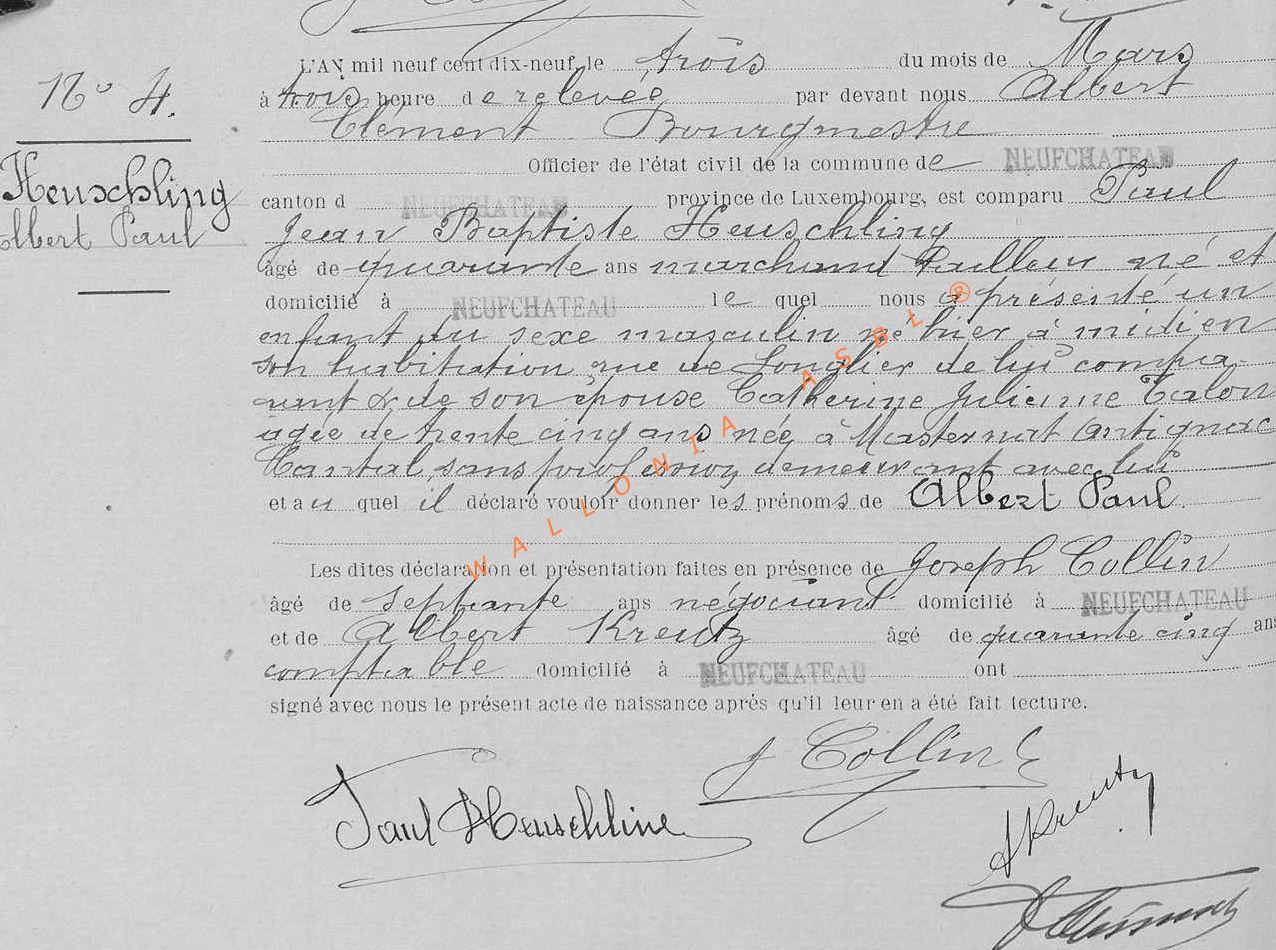 N° 4.
Heuschling
Albert Paul
L'AN mil neuf cent dix-neuf, le trois du mois de Mars
à trois heure de relevée par devant nous Albert
Clément Bourgmestre
Officier de l'état civil de la commune de NEUFCHATEAU
canton d NEUFCHATEAU province de Luxembourg, est comparu Paul
Jean Baptiste Heuschling
âgé de quarante ans marchand tailleur né et
domicilié à NEUFCHATEAU le quel nous a présenté un
enfant du sexe masculin né hier à midi en
son habitation rue de Longlier de lui compa-
rant & de son épouse Catherine Julienne Talon
agée de trente cinq ans née à Antignac
Cantal, sans profession, demeurant avec lui
et au quel il déclaré vouloir donner les prénoms de Albert Paul.
Les dites déclaration et présentation faites en présence de Joseph Collin
âgé de septante ans négociant domicilié à NEUFCHATEAU
et de Albert Kreutz âgé de quarante cinq ans
comptable domicilié à NEUFCHATEAU ont
signé avec nous le présent acte de naissance après qu'il leur en a été fait lecture.
J Collin
Paul Heuschling
A Kreutz
WALLONIA ASBL ®